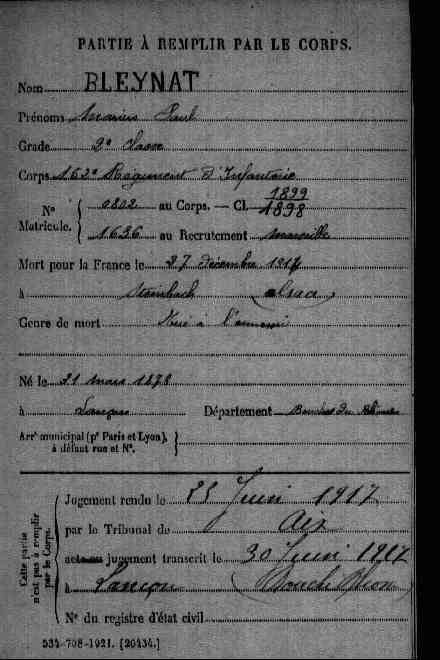 PARTIE À REMPLIR PAR LE CORPS.
Nom BLEYNAT
Prénoms Marius Paul
Grade 2e classe
Corps 163e Régiment d'Infanterie
1899
N° Matricule. 0802 au Corps. — Cl. 1898
1636 au Recrutement Marseille
Mort pour la France le 27 décembre 1914
à Steinbach (Alsace)
Genre de mort Tué à l'ennemi
Né le 31 mars 1878
à Lançon Département Bouches du Rhône
Arrt municipal (pr Paris et Lyon), à défaut rue et N°.
Cette partie n'est pas à remplir par le Corps.
Jugement rendu le Juin 1917
par le Tribunal de Aix
acte ou jugement transcrit le 30 Juin 1917
à Lançon (Bouch Rhon)
N° du registre d'état civil
534-708-1921. [26434.]